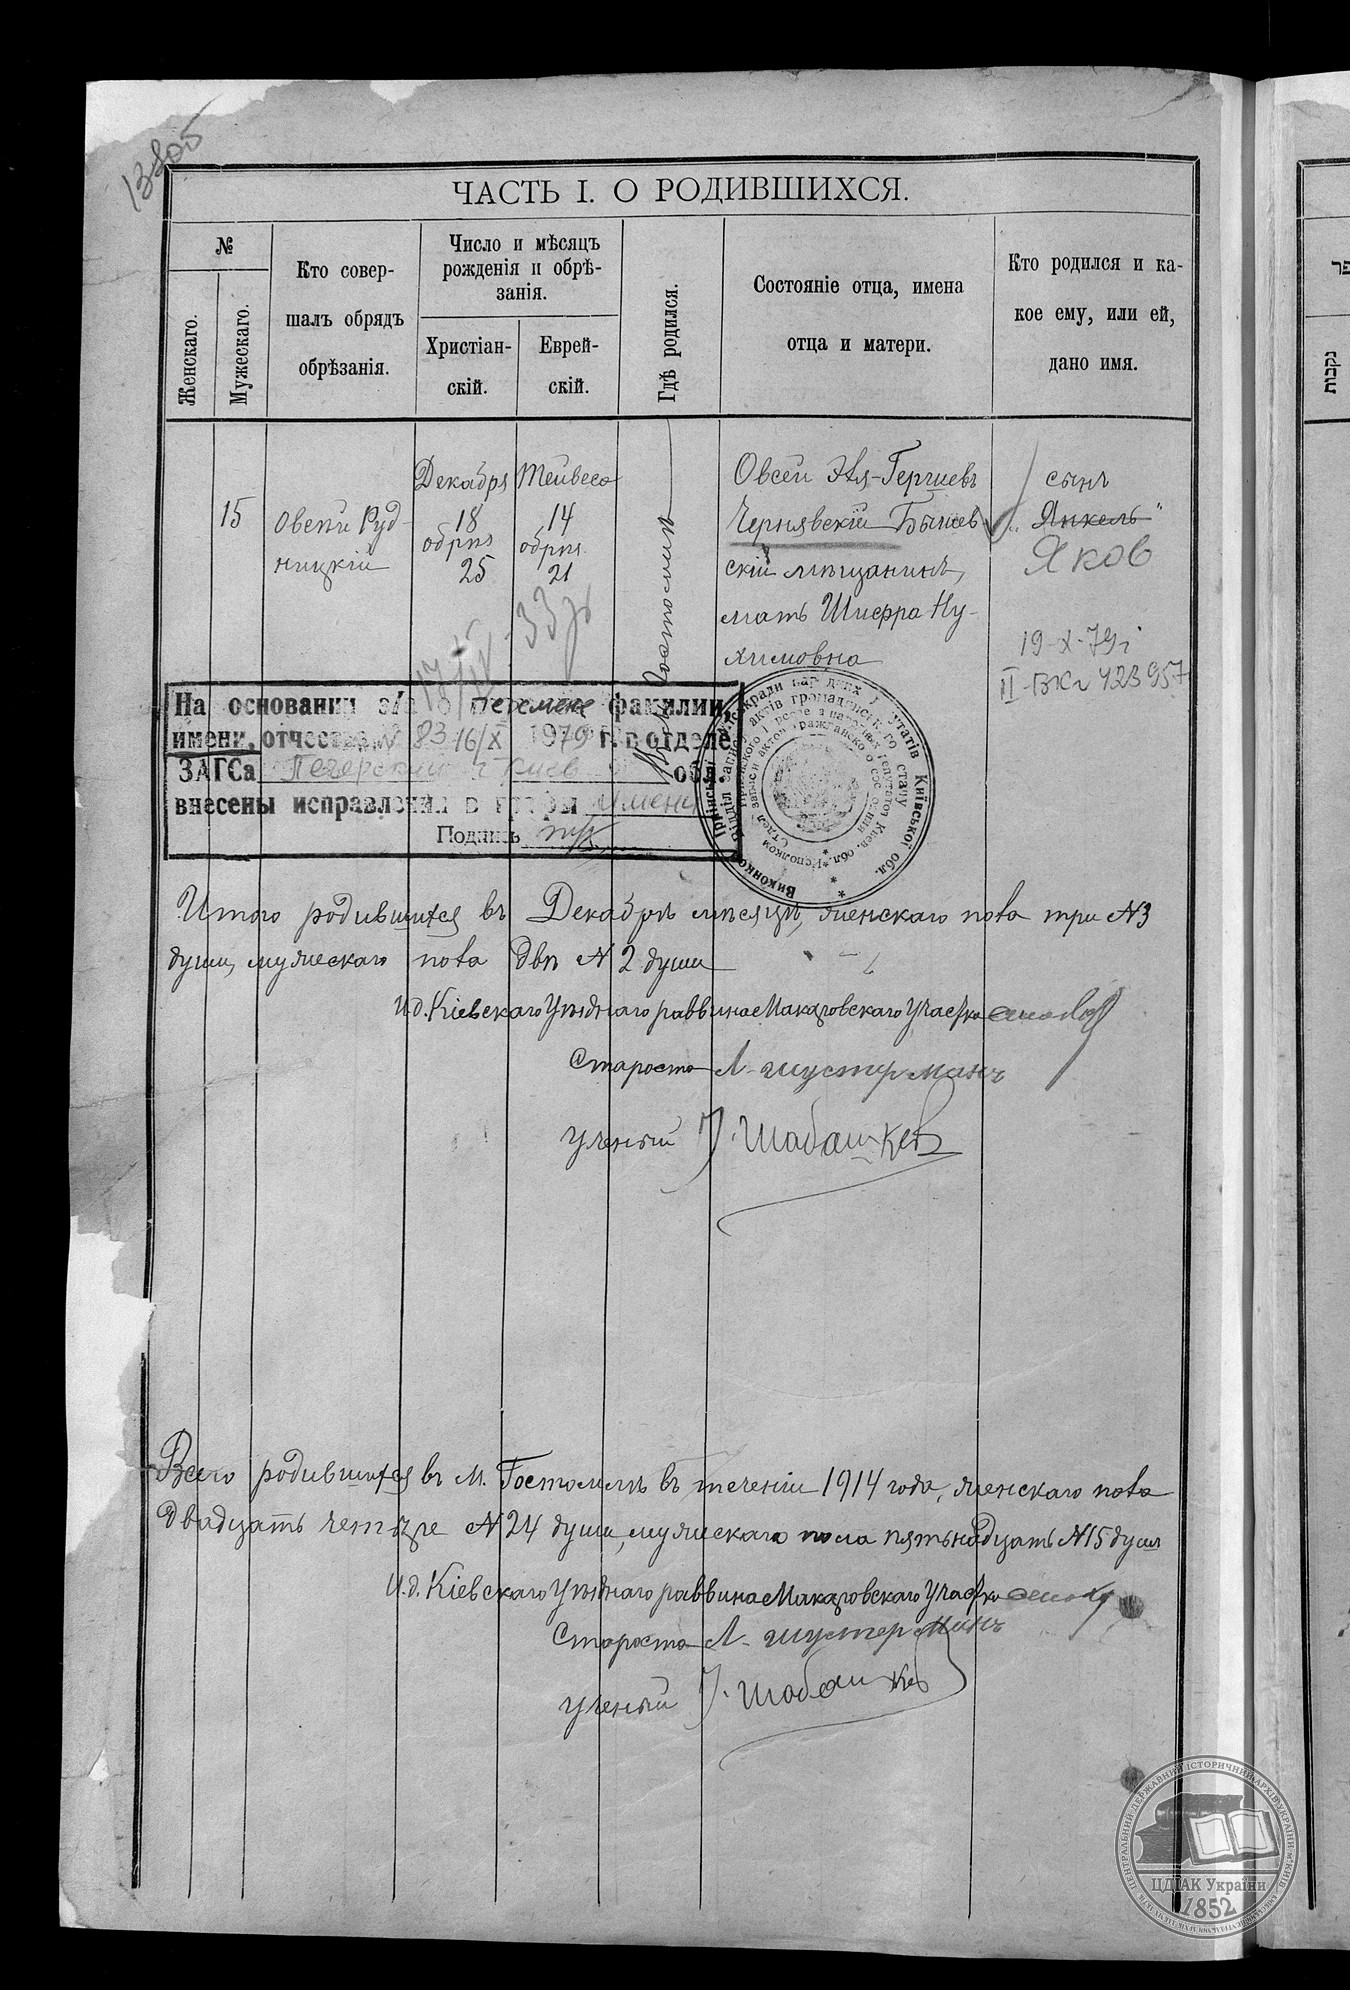 13805
ЧАСТЬ I. О РОДИВШИХСЯ.
№
Женскаго.
Мужескаго.
Кто совер-
шалъ обрядъ
обрѣзанія.
Число и мѣсяцъ
рожденія и обрѣ-
занія.
Христіан-
скій.
Еврей-
скій.
Гдѣ родился.
Состояніе отца, имена
отца и матери.
Кто родился и ка-
кое ему, или ей,
дано имя.
15
Овсей Руд-
ницкій
Декабря
18
обрѣз
25
Тейвеса
14
обрѣз.
21
Мѣст. Гостомль
Овсей
Чернявскій
скій мѣщанинъ,
мать Шифра Ну-
химовна
сынъ
„Янкель"
Яков
19-X-79г
II-БК № 423957
На основании з/а о перемене фамилии,
имени, отчества № 83 16/X 1979 г. в отделе
ЗАГСа Печерский г Киев обл.
внесены исправления в графы имени
Подпись
Виконком Ірпінської міськради народних депутатів Київської обл.
Відділ запису актів громадянського стану
Итого родившихся въ Декабрѣ мѣсяцѣ, женскаго пола три №3
души, мужескаго пола двѣ №2 души
И.д. Кіевскаго Уѣзднаго раввина Макаровскаго Участка
Староста Л. Шустерманъ
Ученый
Всего родившихся въ м. Гостомлѣ въ теченіи 1914 года, женскаго пола
двадцать четыре №24 души, мужескаго пола пятьнадцать №15 душъ
И.д. Кіевскаго Уѣзднаго раввина Макаровскаго Участка
Староста Л. Шустерманъ
Ученый
נקבות
ЦЕНТРАЛЬНИЙ ДЕРЖАВНИЙ ІСТОРИЧНИЙ АРХІВ УКРАЇНИ, м. КИЇВ
ЦДІАК України
1852